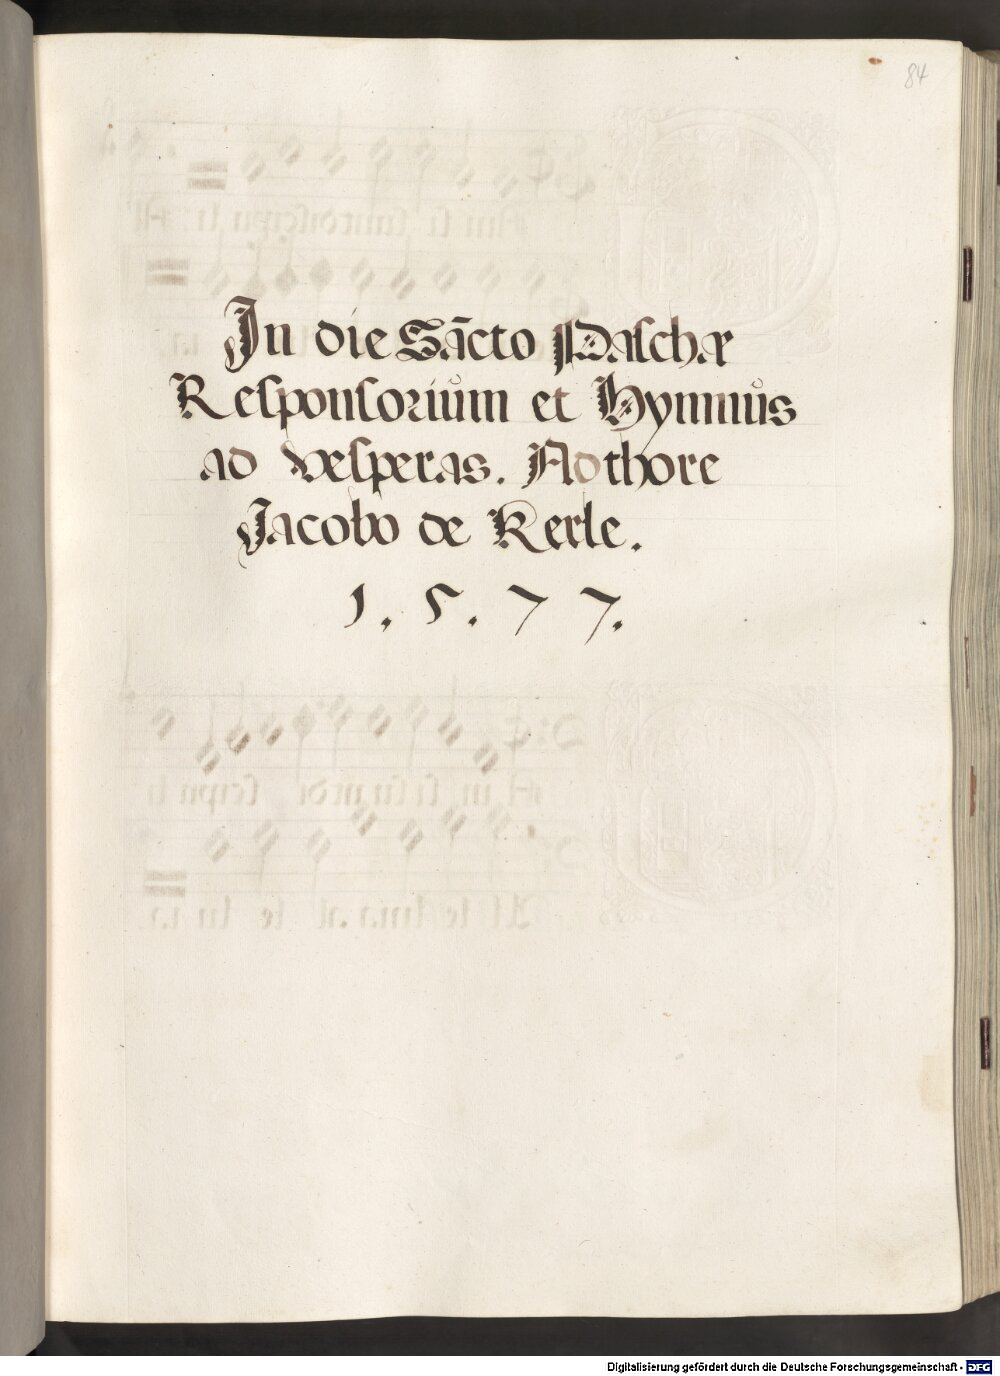 84
In die Sācto Paschæ
Responsorium et Hymnus
ad vesperas. Adthore
Jacobo de Kerle.
1. 5. 7 7.
Digitalisierung gefördert durch die Deutsche Forschungsgemeinschaft - DFG